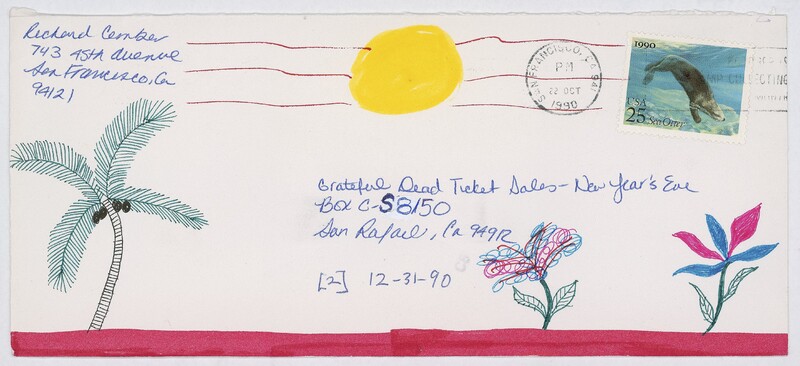 Richard Cember
743 45th Avenue
San Francisco, Ca
94121
SAN FRANCISCO, CA 941
PM
22 OCT
1990
1990
USA
25 Sea Otter
COLLECTING
Grateful Dead Ticket Sales - New Year's Eve
Box C-S8150
San Rafael, Ca 94912
[2] 12-31-90